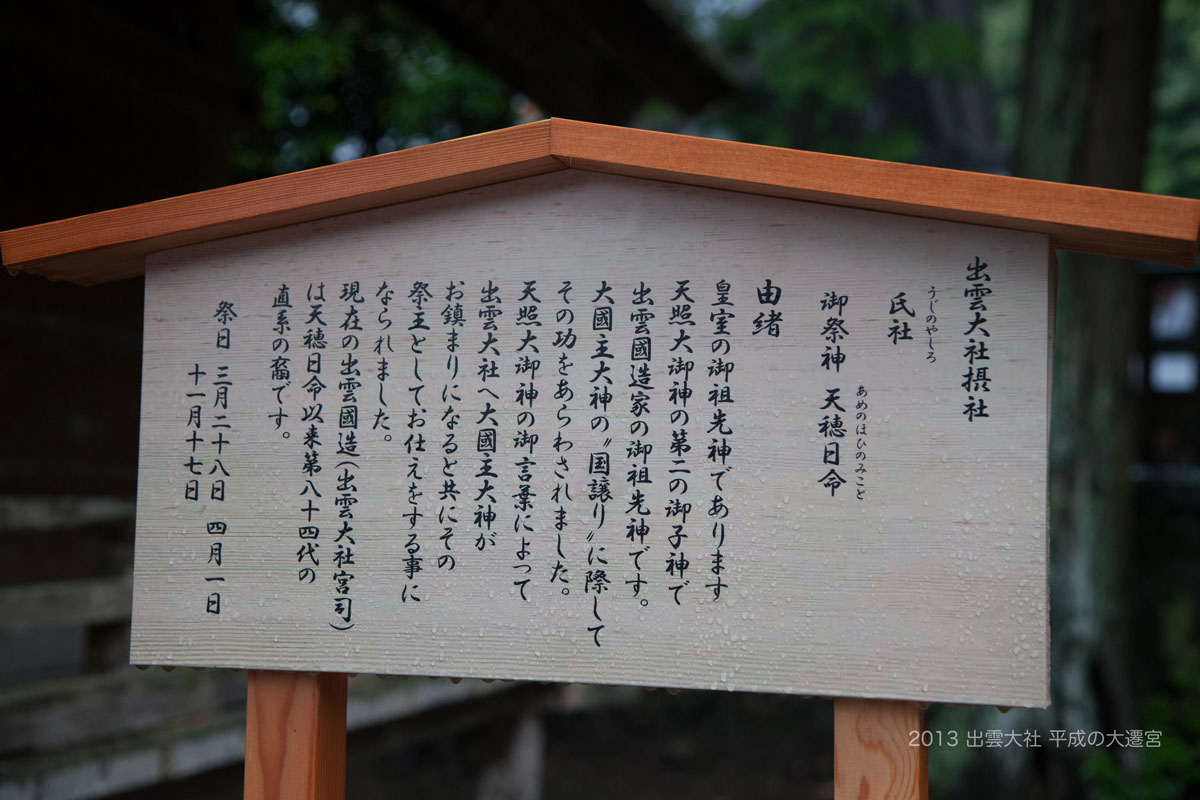 出雲大社摂社
うじのやしろ
氏社
あめのほひのみこと
御祭神 天穂日命
由緒
皇室の御祖先神であります
天照大御神の第二の御子神で
出雲國造家の御祖先神です。
大國主大神の〝国譲り〟に際して
その功をあらわされました。
天照大御神の御言葉によって
出雲大社へ大國主大神が
お鎮まりになると共にその
祭主としてお仕えをする事に
なられました。
現在の出雲國造(出雲大社宮司)
は天穂日命以来第八十四代の
直系の裔です。
祭日 三月二十八日 四月一日
十一月十七日
2013 出雲大社 平成の大遷宮